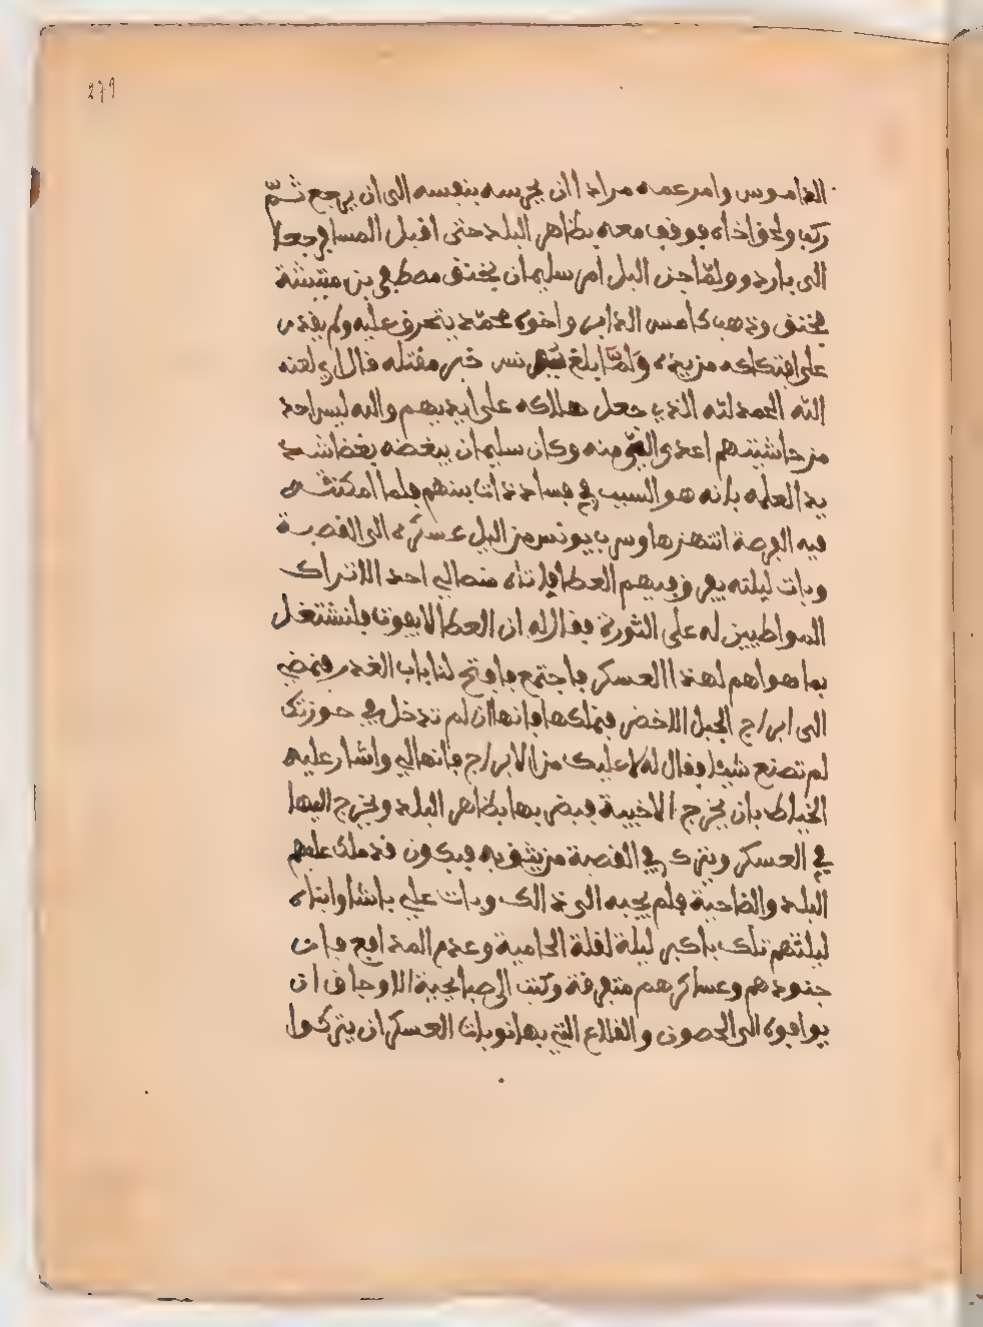 279
الداموس وامر عمه مرادا ان يحرسه بنفسه الى ان يرجع ثمّ
ركب ولحق اخاه فوقف معه بظاهر البلد حتى اقبل المسا فرجعا
الى باردو ولمّا جن اليل امر سليمان بخنق مصطفى بن متيشة
فخنق وذهب كامس الدابر واخوه محمّد يتحرق عليه ولم يقدر
على افتكاكه من يده ولمّا بلغ يونس خبر مقتله قال لابي لعنه
الله الحمد لله الذي جعل هلاكه على ايديهم والله ليس احد
من حاشيتهم اعدى الي منه وكان سليمان يبغضه بغضا شد
يد العلمه بانه هو السبب في فساد ذات بينهم فلما امكنته
فيه الفرصة انتهزها وسرب يونس من اليل عسكره الى القصبة
وبات ليلته يفرق فيهم العطا فاتاه منصالي احد الاتراك
المواطيين له على الثورة فقال له ان العطا لا يفوت فلنشتغل
بما هو اهم لهذا العسكر فاجتمع فافتح لنا باب الغدر فنمضي
الى ابراج الجبل الاخضر فنملكها فانها ان لم تدخل في حوزتك
لم تصنع شيئا فقال له لا عليك من الابراج فانها لي واشار عليه
الخياط بان يخرج الاخبية فيضربها بظاهر البلد ويخرج اليها
في العسكر ويترك في القصبة من يثق به فيكون قد ملك عليهم
البلد والضاحية فلم يجبه الى ذالك وبات علي باشا وابناه
ليلتهم تلك باكبر ليلة لقلة الحامية وعدم المدافع فان
جنودهم وعساكرهم متفرقة وكتب الى صبايحية الاوجاق ان
يوافوه الى الحصون والقلاع التي بها نوبات العسكر ان يتركوا